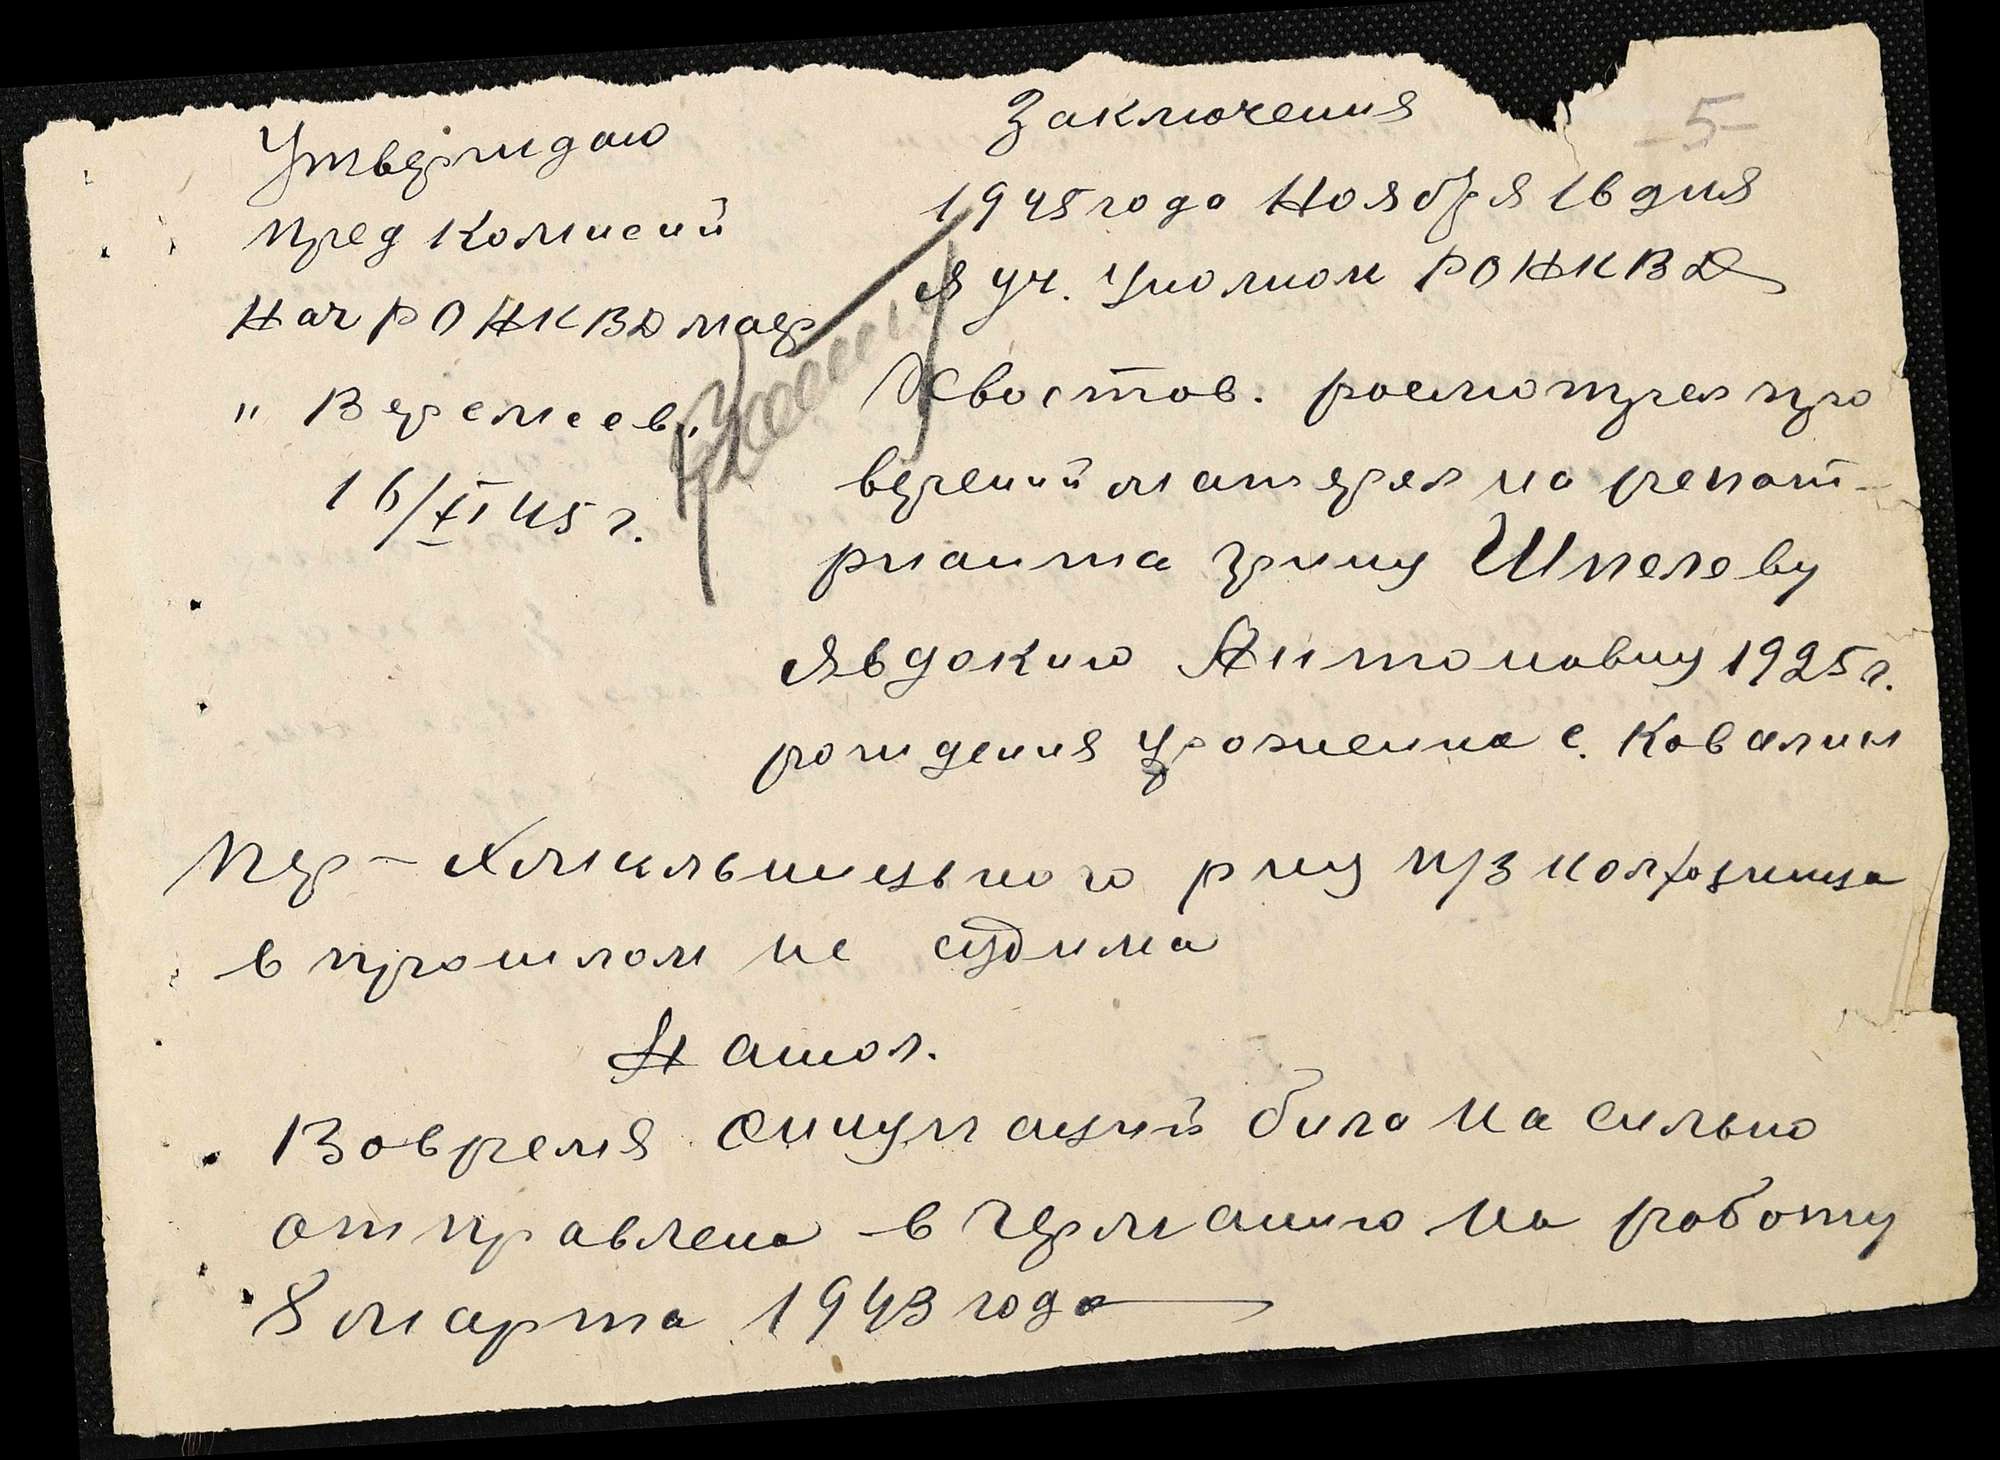 5
Утверждаю
пред Комисий
Нач РОНКВД маер
" Веремеев "
16/XI 45 г.
Заключения
1945 года Ноября 16 дня
я уч. Уполном РОНКВД
Хвостов. росмотрел про
верений матерял на репат-
рианта грину Шпелеву
Явдокию Антоновну 1925 г.
рождения уроженка с. Ковалин
Пер-Хмильницького р-ну п/з колхозница
в прошлом не судима
Нашол.
Вовремя окупаций била на сильно
отправлена в Германию на роботу
8 марта 1943 года